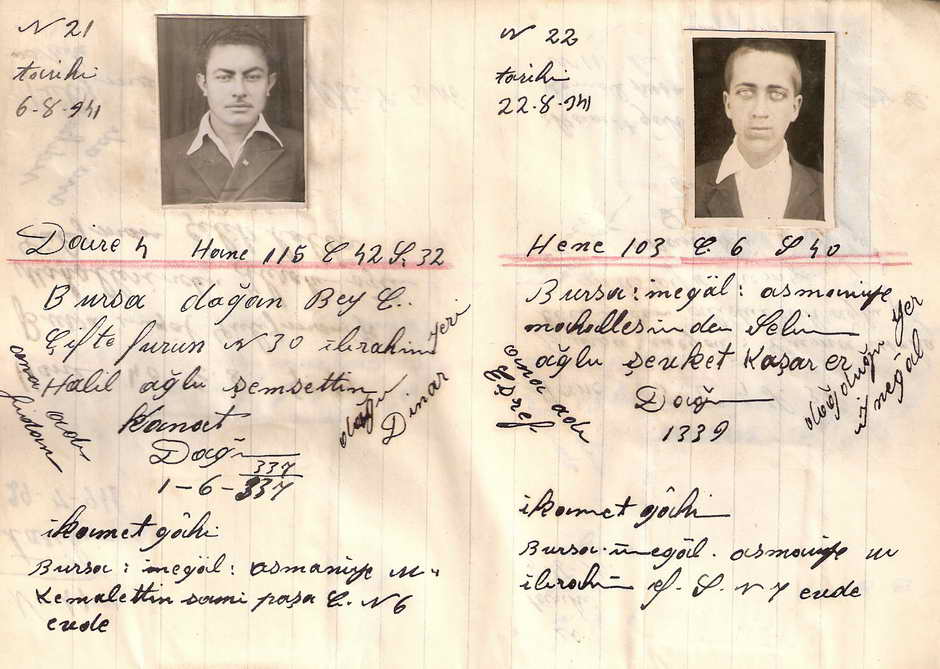 N 21
tarihi
6-8-941
Daire 4 Hane 115 C 42 S. 32
Bursa doğan Bey C.
Çifte furun N 30 ibrahim
Halil oğlu şemsettin
Kanat
Doğu
337
1-6-337
ana adı
fidan
doğu yeri
Dinar
ikametgâhi
Bursa: inegöl: osmaniye M.
Kemalettin sami paşa C. N 6
evde
N 22
tarihi
22-8-941
Hene 103 C. 6 S 40
Bursa: inegöl: osmaniye
mahallesinden Selim
oğlu şevket Kaşarer
Doğu
1339
ana adı
Eşref
doğduğu yer
inegöl
ikametgâhi
Bursa. inegöl. osmaniye M
ibrahim ef. S. N 7 evde